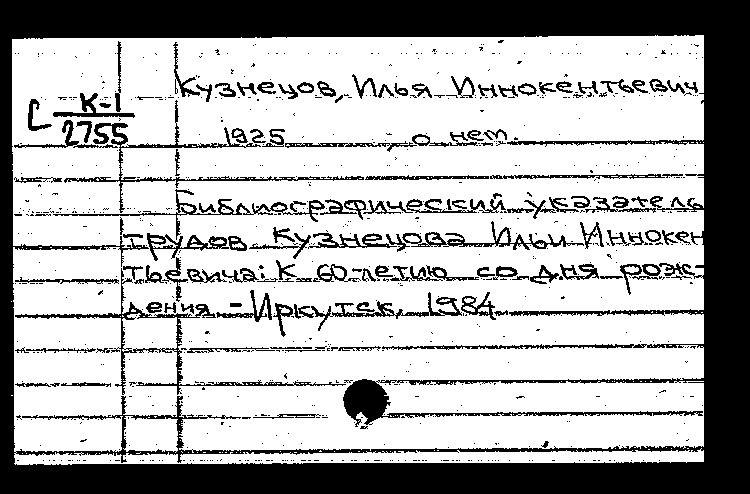 Кузнецов, Илья Иннокентьевич
[ К-1
2755
1925 , о нем.
Библиографический указатель
трудов Кузнецова Ильи Иннокен
тьевича: К 60-летию со дня рож-
дения. - Иркутск, 1984.